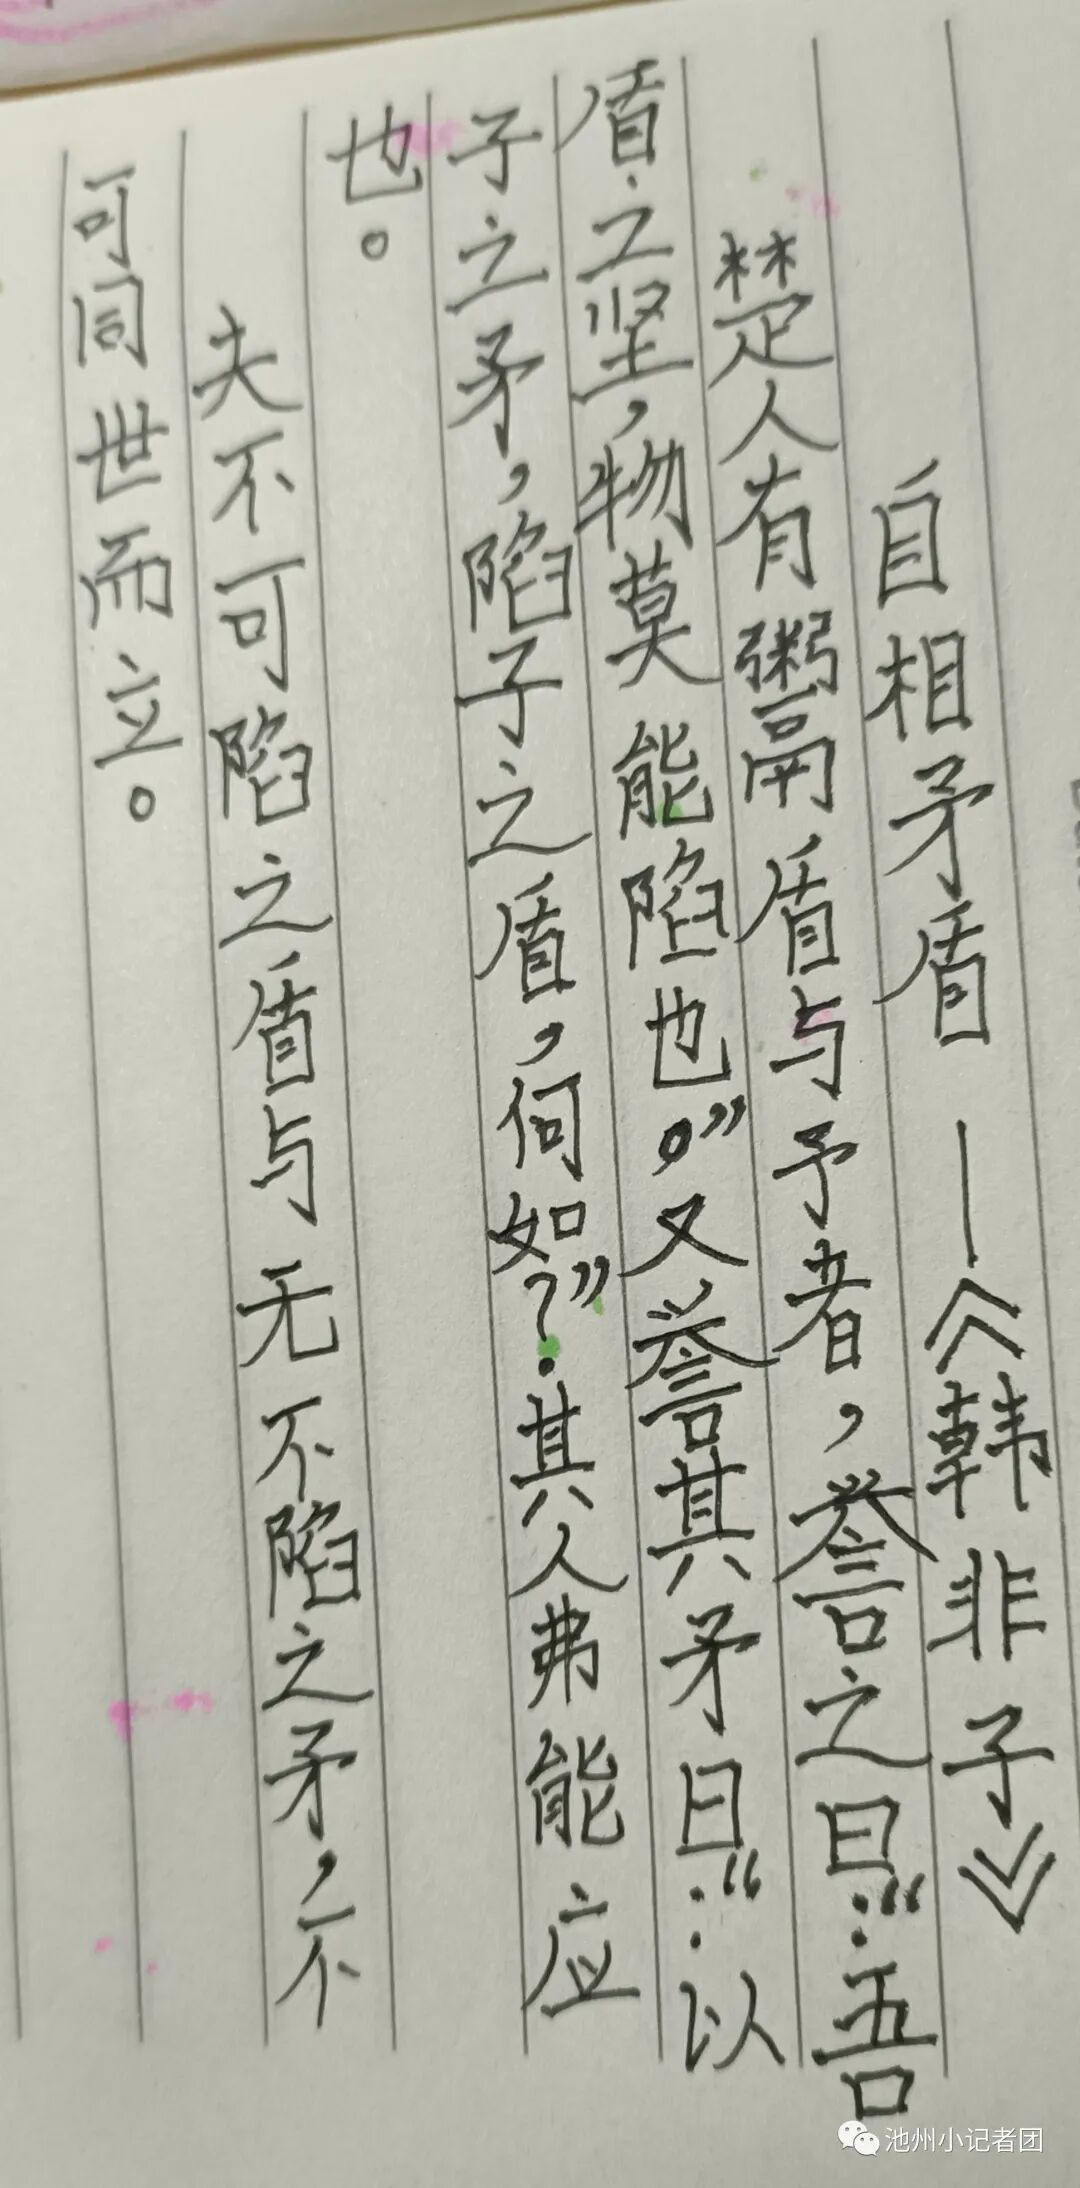 自相矛盾 —《韩非子》
楚人有鬻盾与予者，誉之曰：“吾
盾之坚，物莫能陷也。”又誉其矛曰：“以
子之矛，陷子之盾，何如？”其人弗能应
也。
夫不可陷之盾与无不陷之矛，不
可同世而立。
池州小记者团